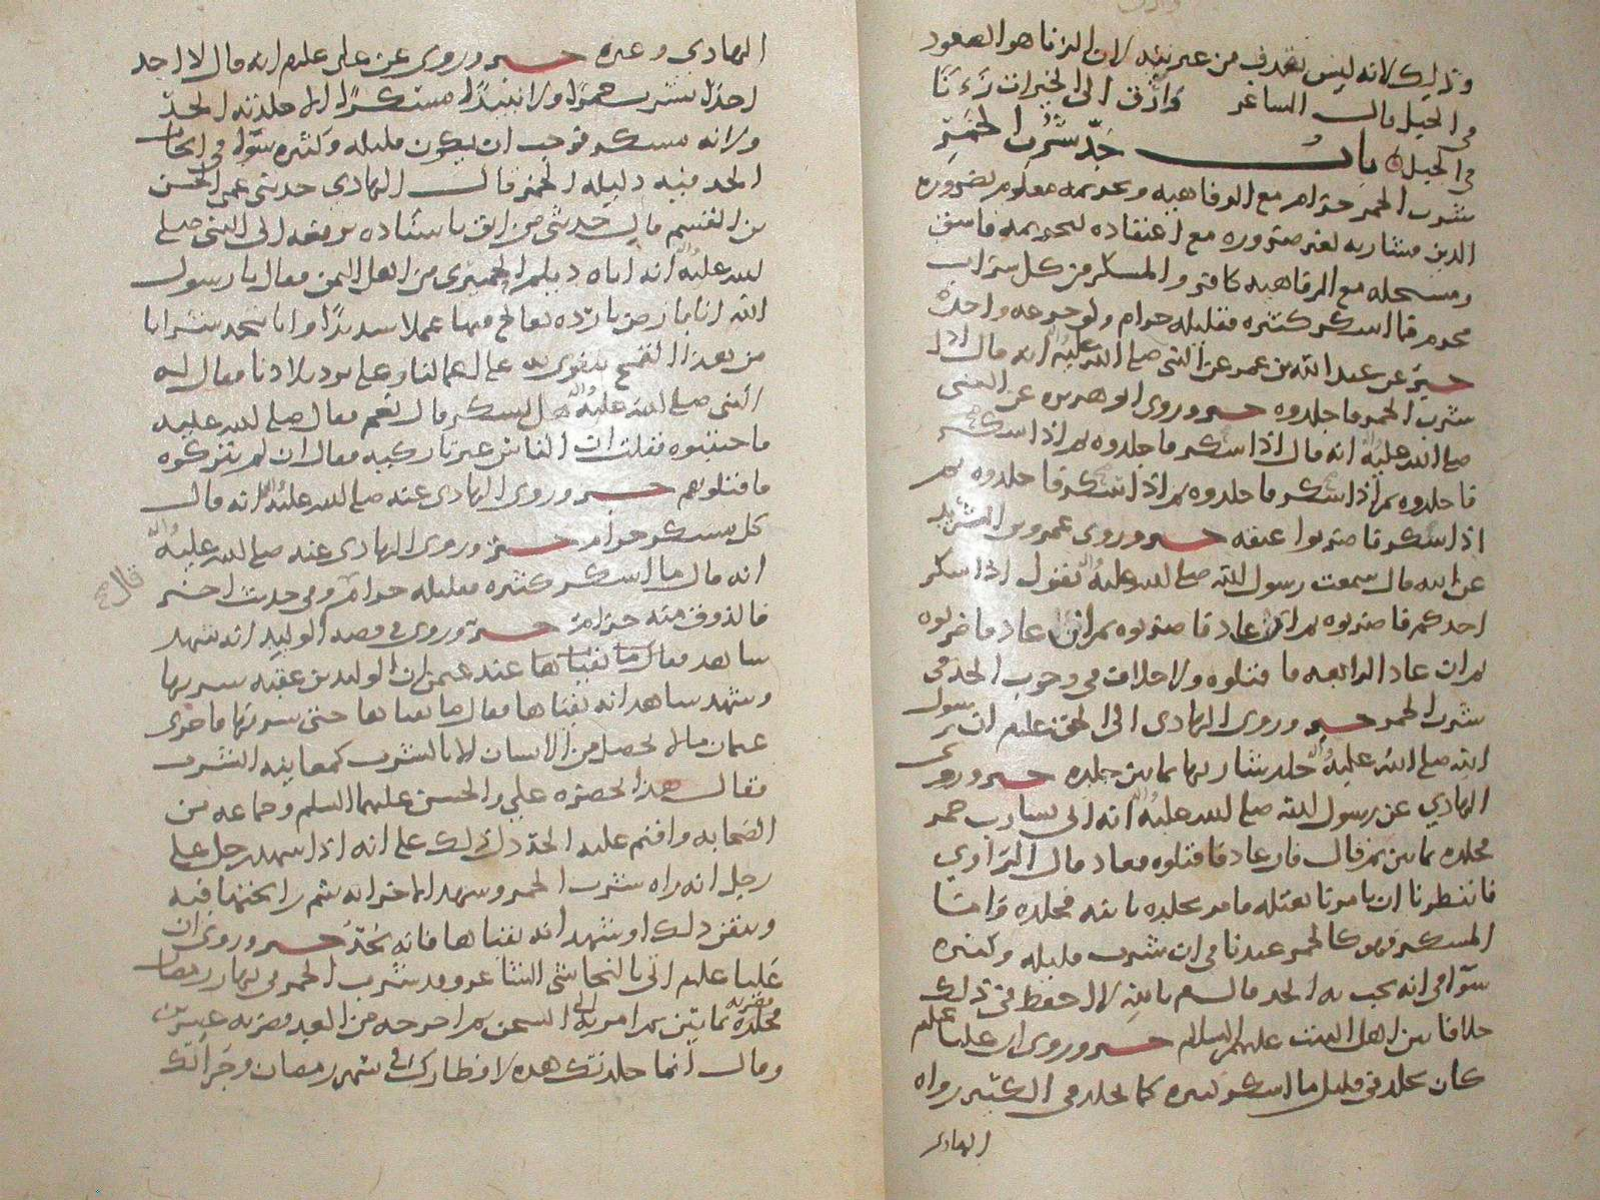 وذلك لانه ليس بقذف من غير نيه لان الزنا هو الصعود
في الجبل قال الشاعر وارق الى الخيرات زناء
في الجبل باب حد شرب الخمر
شرب الخمر حرام مع الرفاهيه وتحريمه معلوم بضروره
الدين فشاربه لغير ضروره مع اعتقاده لتحريمه فاسق
ومستحله مع الرفاهيه كافر والمسكر من كل شراب
محرم فما اسكر كثيره فقليله حرام ولو جرعه واحده
خبر عن عبد الله بن عمر عن النبي صلى الله عليه واله انه قال اذا
شرب الخمر فاجلدوه خبر وروى ابو هريره عن النبي
صلى الله عليه واله انه قال اذا سكر فاجلدوه ثم اذا سكر
فاجلدوه ثم اذا سكر فاجلدوه ثم اذا سكر فاجلدوه ثم
اذا سكر فاضربوا عنقه خبر وروى عمرو بن الشريد
عن ابيه قال سمعت رسول الله صلى الله عليه واله يقول اذا سكر
احدكم فاضربوه ثم ان عاد فاضربوه ثم ان عاد فاضربوه
ثم ان عاد الرابعه فاقتلوه ولا خلاف في وجوب الحد في
شرب الخمر خبر وروى الهادي الى الحق عليلم ان رسول
الله صلى الله عليه واله جلد شاربها ثمانين جلده خبر وروى
الهادي عن رسول الله صلى الله عليه واله انه اتي بشارب خمر
فجلده ثمانين ثم قال فان عاد فاقتلوه فعاد قال الراوي
فانتظرنا ان يامرنا بقتله فامر بجلده فجلده فاما
المسكر فهو كالخمر عندنا في ان شرب قليله وكثيره
سوا في انه يجب به الحد قال لا احفظ في ذلك
خلافا بين اهل البيت عليهم السلام خبر وروى ان عليا عليلم
كان يجلد في قليل ما اسكر كثيره كما يجلد في الكثير رواه
الهادي
الهادي وغيره خبر وروى عن علي عليلم انه قال لا اجد
احدا شرب خمرا ولا نبيذا مسكرا الا جلدته الحد
ولانه مسكر فوجب ان يكون قليله وكثيره سوا في ايجاب
الحد فيه دليله الخمر قال الهادي حدثني عمي الحسن
بن القسم قال حدثني من اثق باسناده يرفعه الى النبي صلى
الله عليه واله انه اتاه ديلم الحميري من اهل اليمن فقال يا رسول
الله انا بارض بارده نعالج فيها عملا شديدا وانا نتخذ شرابا
من هذا القمح نتقوى به على اعمالنا وعلى برد بلادنا فقال له
النبي صلى الله عليه واله هل يسكر قال نعم فقال صلى الله عليه
فاجتنبوه فقلت ان الناس غير تاركيه فقال ان لم يتركوه
فاقتلوهم خبر وروى الهادي عنه صلى الله عليه واله انه قال
كل مسكر حرام خبر وروى الهادي عنه صلى الله عليه واله
انه قال ما اسكر كثيره فقليله حرام وفي حديث اخر
قال
فالذوق منه حرام خبر وروي في قصه الوليد انه شهد
شاهد فقال ما تقياها عند عثمن ان الوليد بن عقبه شربها
وشهد شاهد انه تقياها فقال ما تقياها حتى شربها فاجرى
عثمان ما لا يحصل من الانسان الا بالشرب كمعاينه الشرب
فقال هذا بحضره علي والحسن عليهما السلم وجماعه من
الصحابه واقيم عليه الحد دل ذلك على انه اذا شهد رجل على
رجل انه راه شرب الخمر وشهد الاخر انه شم رايحتها فيه
وتيقن ذلك او شهد انه تقياها فانه يحد خبر وروي ان
عليا عليلم اتي بالنجاشي الشاعر وقد شرب الخمر في نهار رمضان
فجلده ثمانين ثم امر به الى السجن ثم اخرجه من الغد فضربه عشرين
وقال انما جلدتك هذه لافطارك في شهر رمضان وجراتك